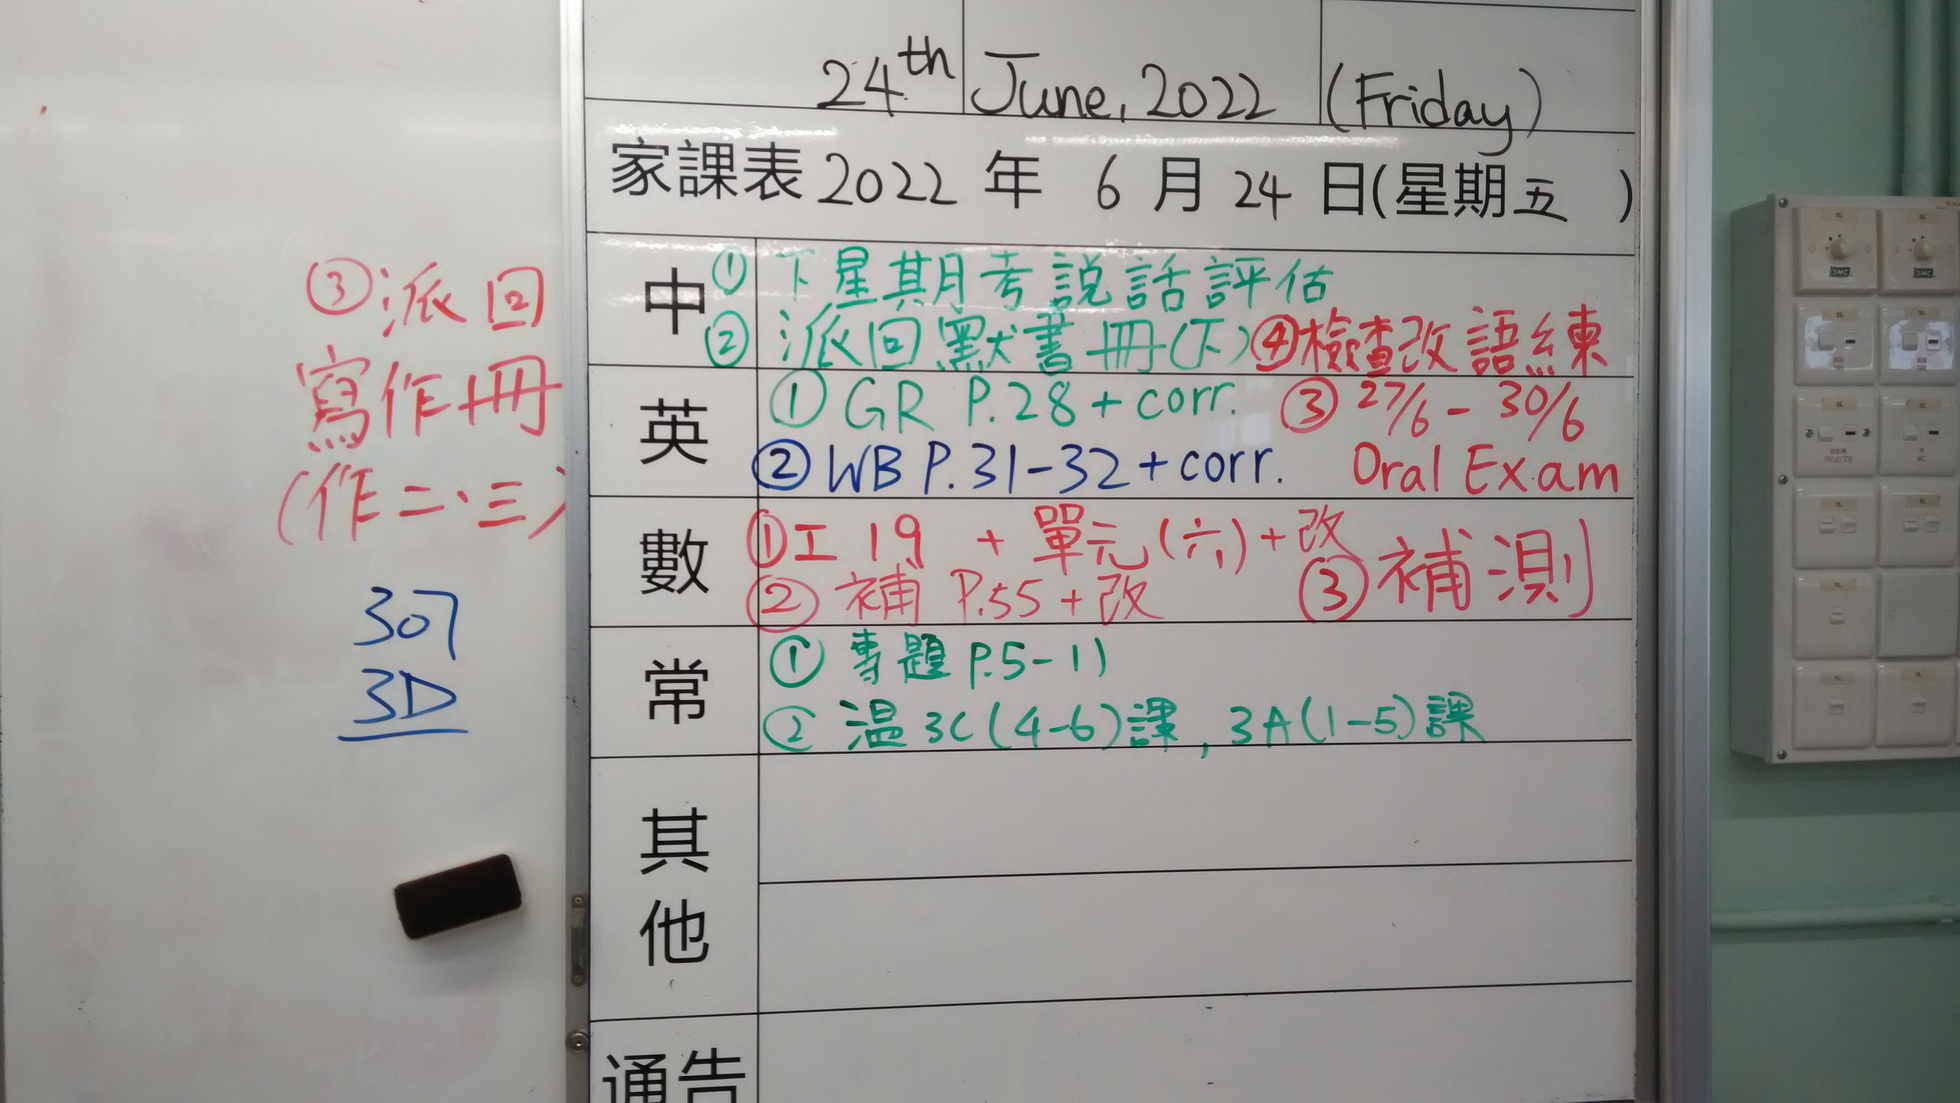 24th June, 2022 (Friday)
家課表 2022 年 6 月 24 日(星期五 )
中
① 下星期考説話評估
② 派回默書冊(下) ④檢查改語練
③派回
寫作冊
(作二、三)
英
① GR P.28 + corr. ③ 27/6 - 30/6
② WB P.31-32 + corr. Oral Exam
數
①工 19 + 單元(六)+改
② 補 P.55 + 改 ③ 補測
307
3D
常
① 專題 P.5-11
② 温 3C(4-6)課, 3A(1-5)課
其他
通告